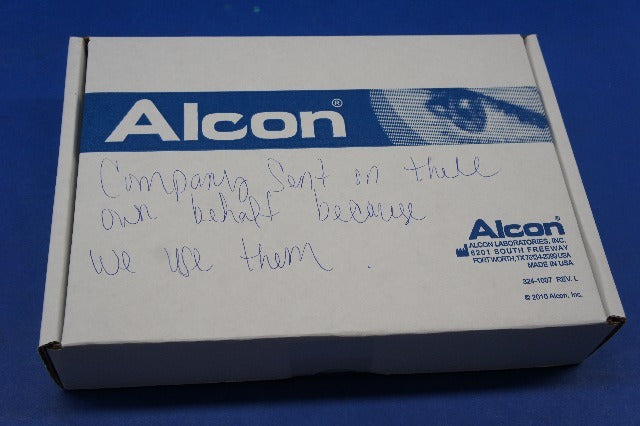 Alcon®
Company Sent on thell
own behalf because
we use them.
Alcon®
ALCON LABORATORIES, INC.
6201 SOUTH FREEWAY
FORT WORTH, TX 76134-2099 USA
MADE IN USA
324-1007 REV. L
© 2010 Alcon, Inc.